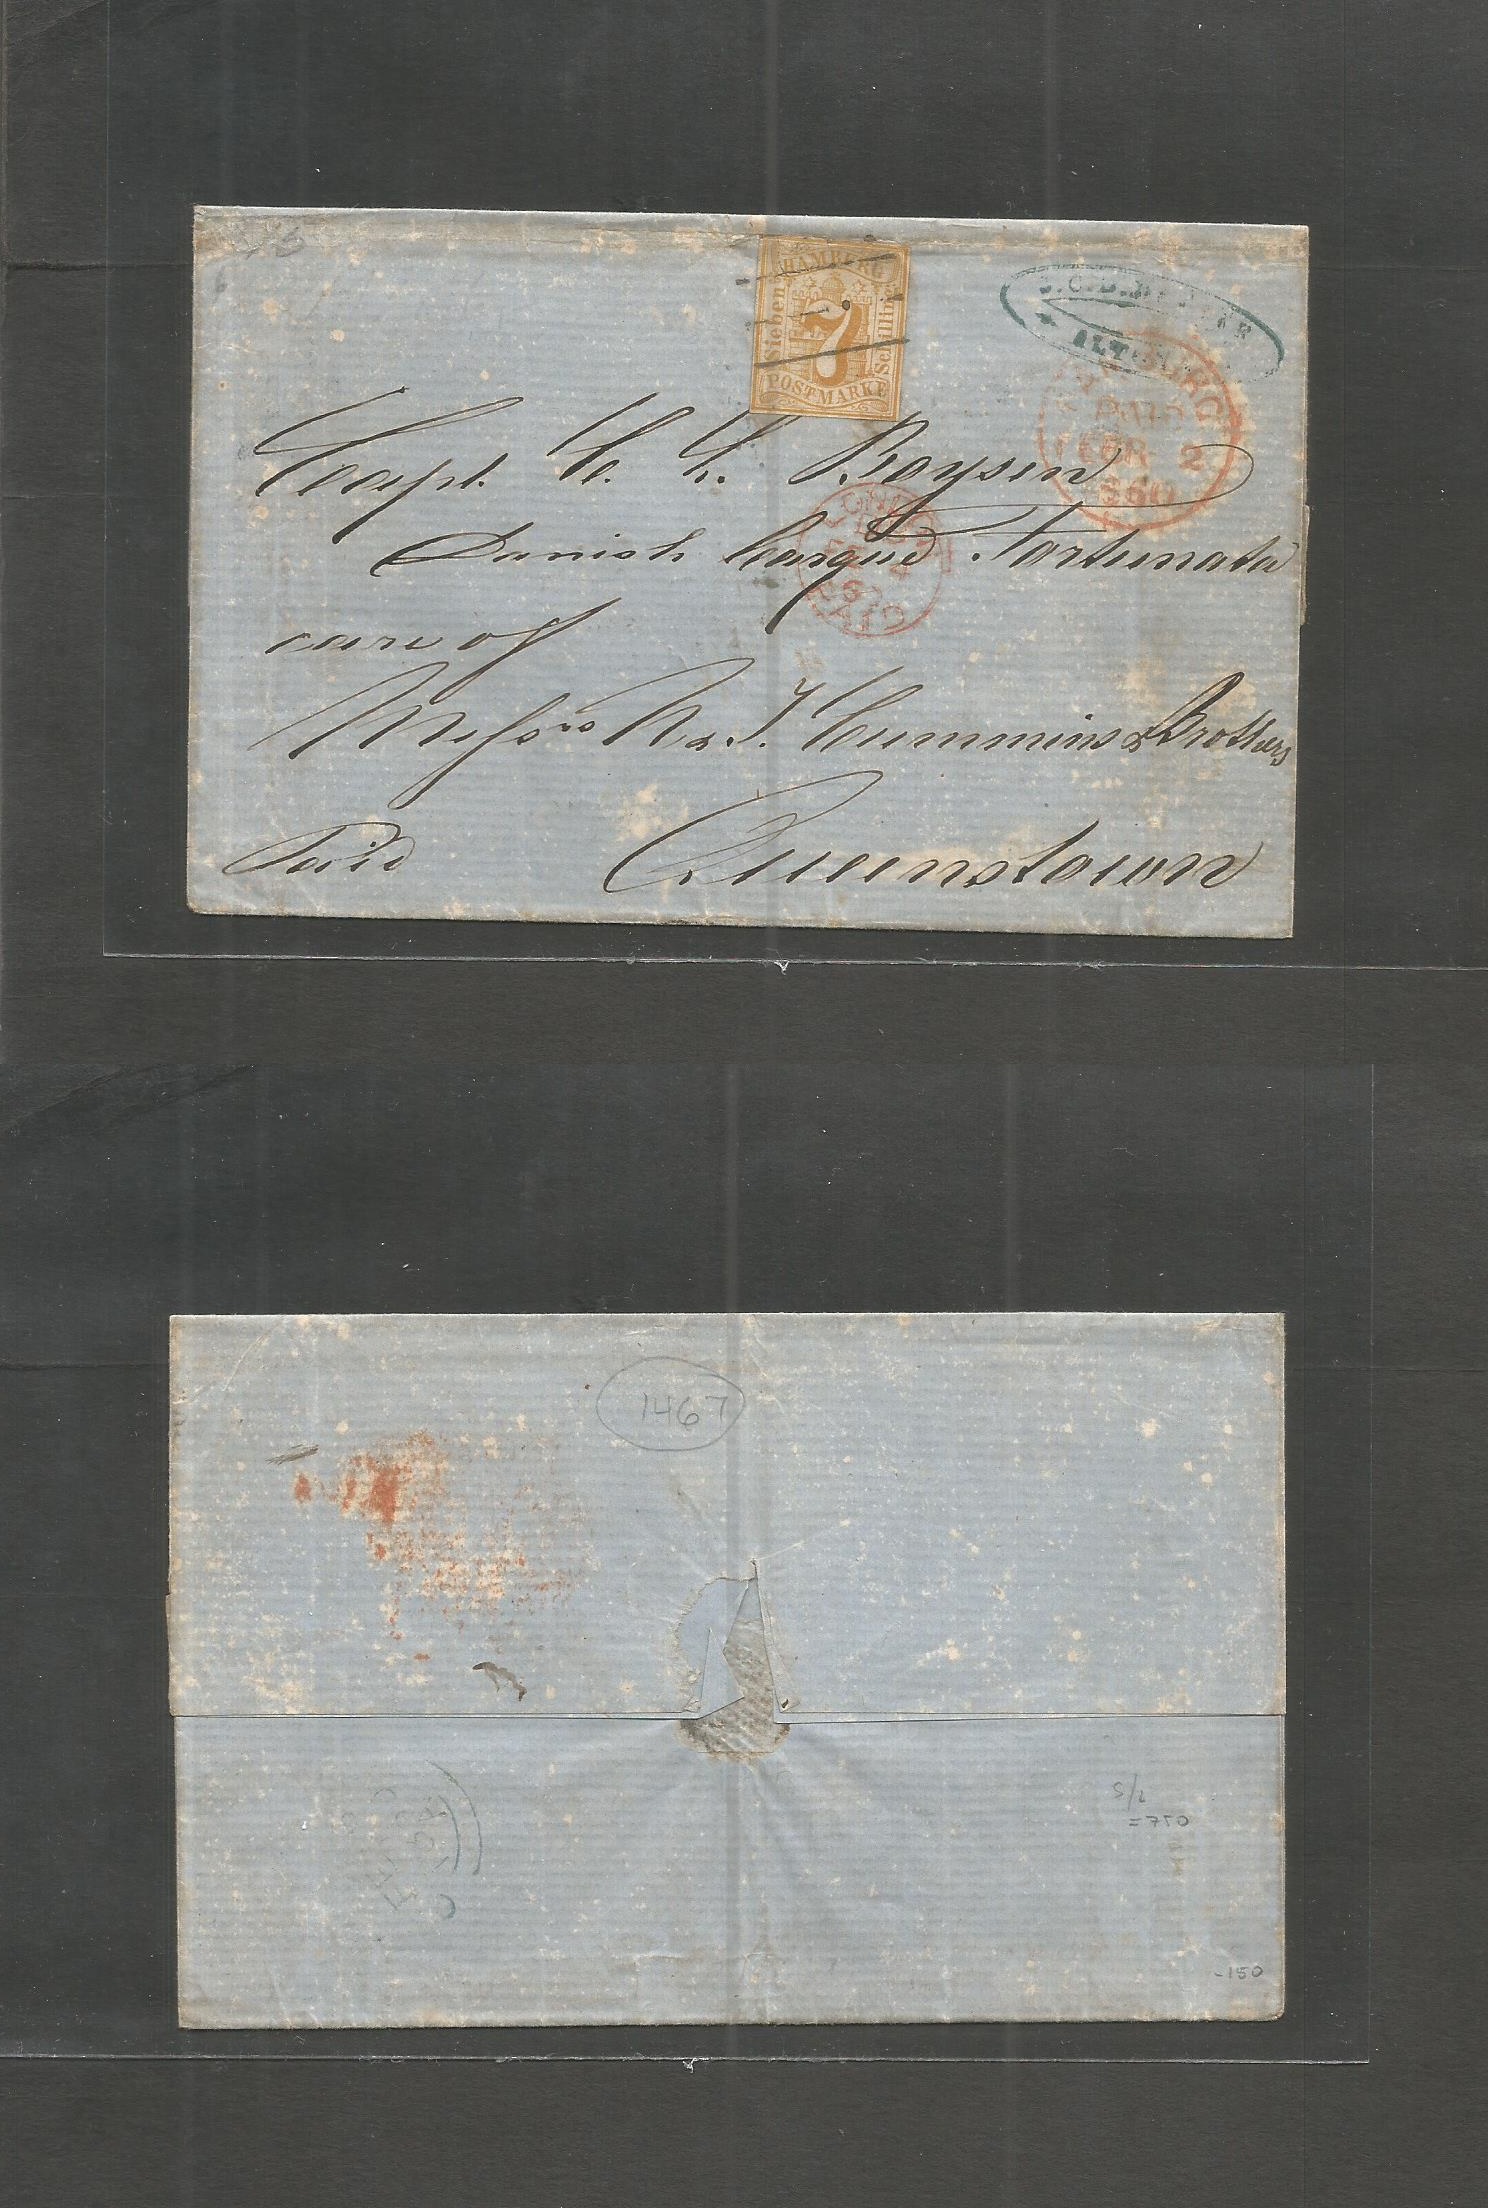 HAMBURG
Sieben
7
Schilling
POSTMARKE
HAMBURG
PAID
FEBR 2
1860
LONDON
PAID
Capt. C. C. Boysen
Danish barque Fortunata
care of
Messrs N. & J. Cummins & Brothers
Paid
Queenstown
1467
5/2
=750
-150